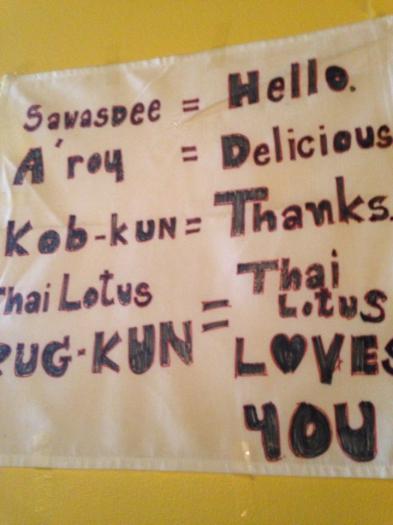 Sawasdee = Hello.
A'roy = Delicious
Kob-kun = Thanks.
Thai Lotus = Thai Lotus
RUG-KUN LOVES
YOU